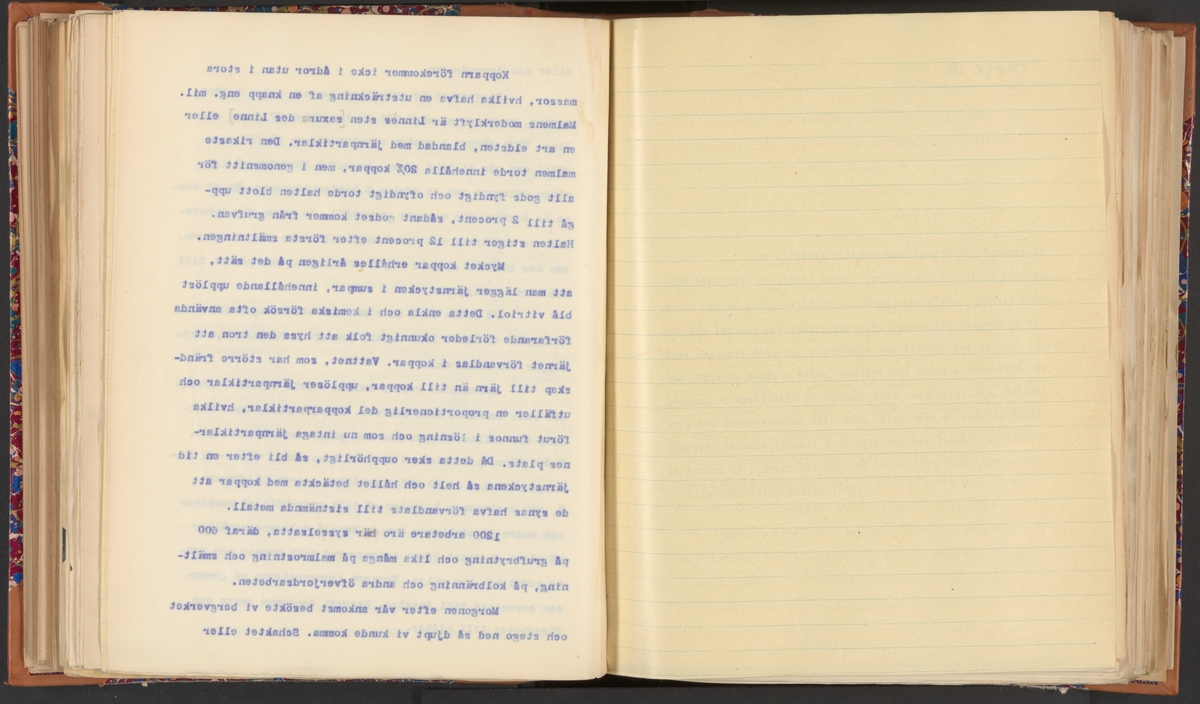 Kopparn förekommer icke i ådror utan i stora
massor, hvilka hafva en utsträckning af en knapp eng. mil.
Malmens moderklyft är Linnés sten [saxum des Linne] eller
en art eldsten, blandad med järnpartiklar. Den rikaste
malmen torde innehålla 20% koppar, men i genomsnitt för
allt gods fyndigt och ofyndigt torde halten blott upp-
gå till 2 procent, sådant godset kommer från grufvan.
Halten stiger till 12 procent efter första smältningen.
Mycket koppar erhålles årligen på det sätt,
att man lägger järnstycken i sumpar, innehållande upplöst
blå vitriol. Detta enkla och i kemiska försök ofta använda
förfarande förleder okunnigt folk att hysa den tron att
järnet förvandlas i koppar. Vattnet, som har större fränd-
skap till järn än till koppar, upplöser järnpartiklar och
utfäller en proportionerlig del kopparpartiklar, hvilka
förut funnos i lösning och som nu intaga järnpartiklar-
nes plats. Då detta sker oupphörligt, så bli efter en tid
järnstyckena så helt och hållet betäckta med koppar att
de synas hafva förvandlats till sistnämnda metall.
1200 arbetare äro här sysselsatta, däraf 600
på grufbrytning och lika många på malmrostning och smält-
ning, på kolbränning och andra öfverjordsarbeten.
Morgonen efter vår ankomst besökte vi bergverket
och stego ned så djupt vi kunde komma. Schaktet eller